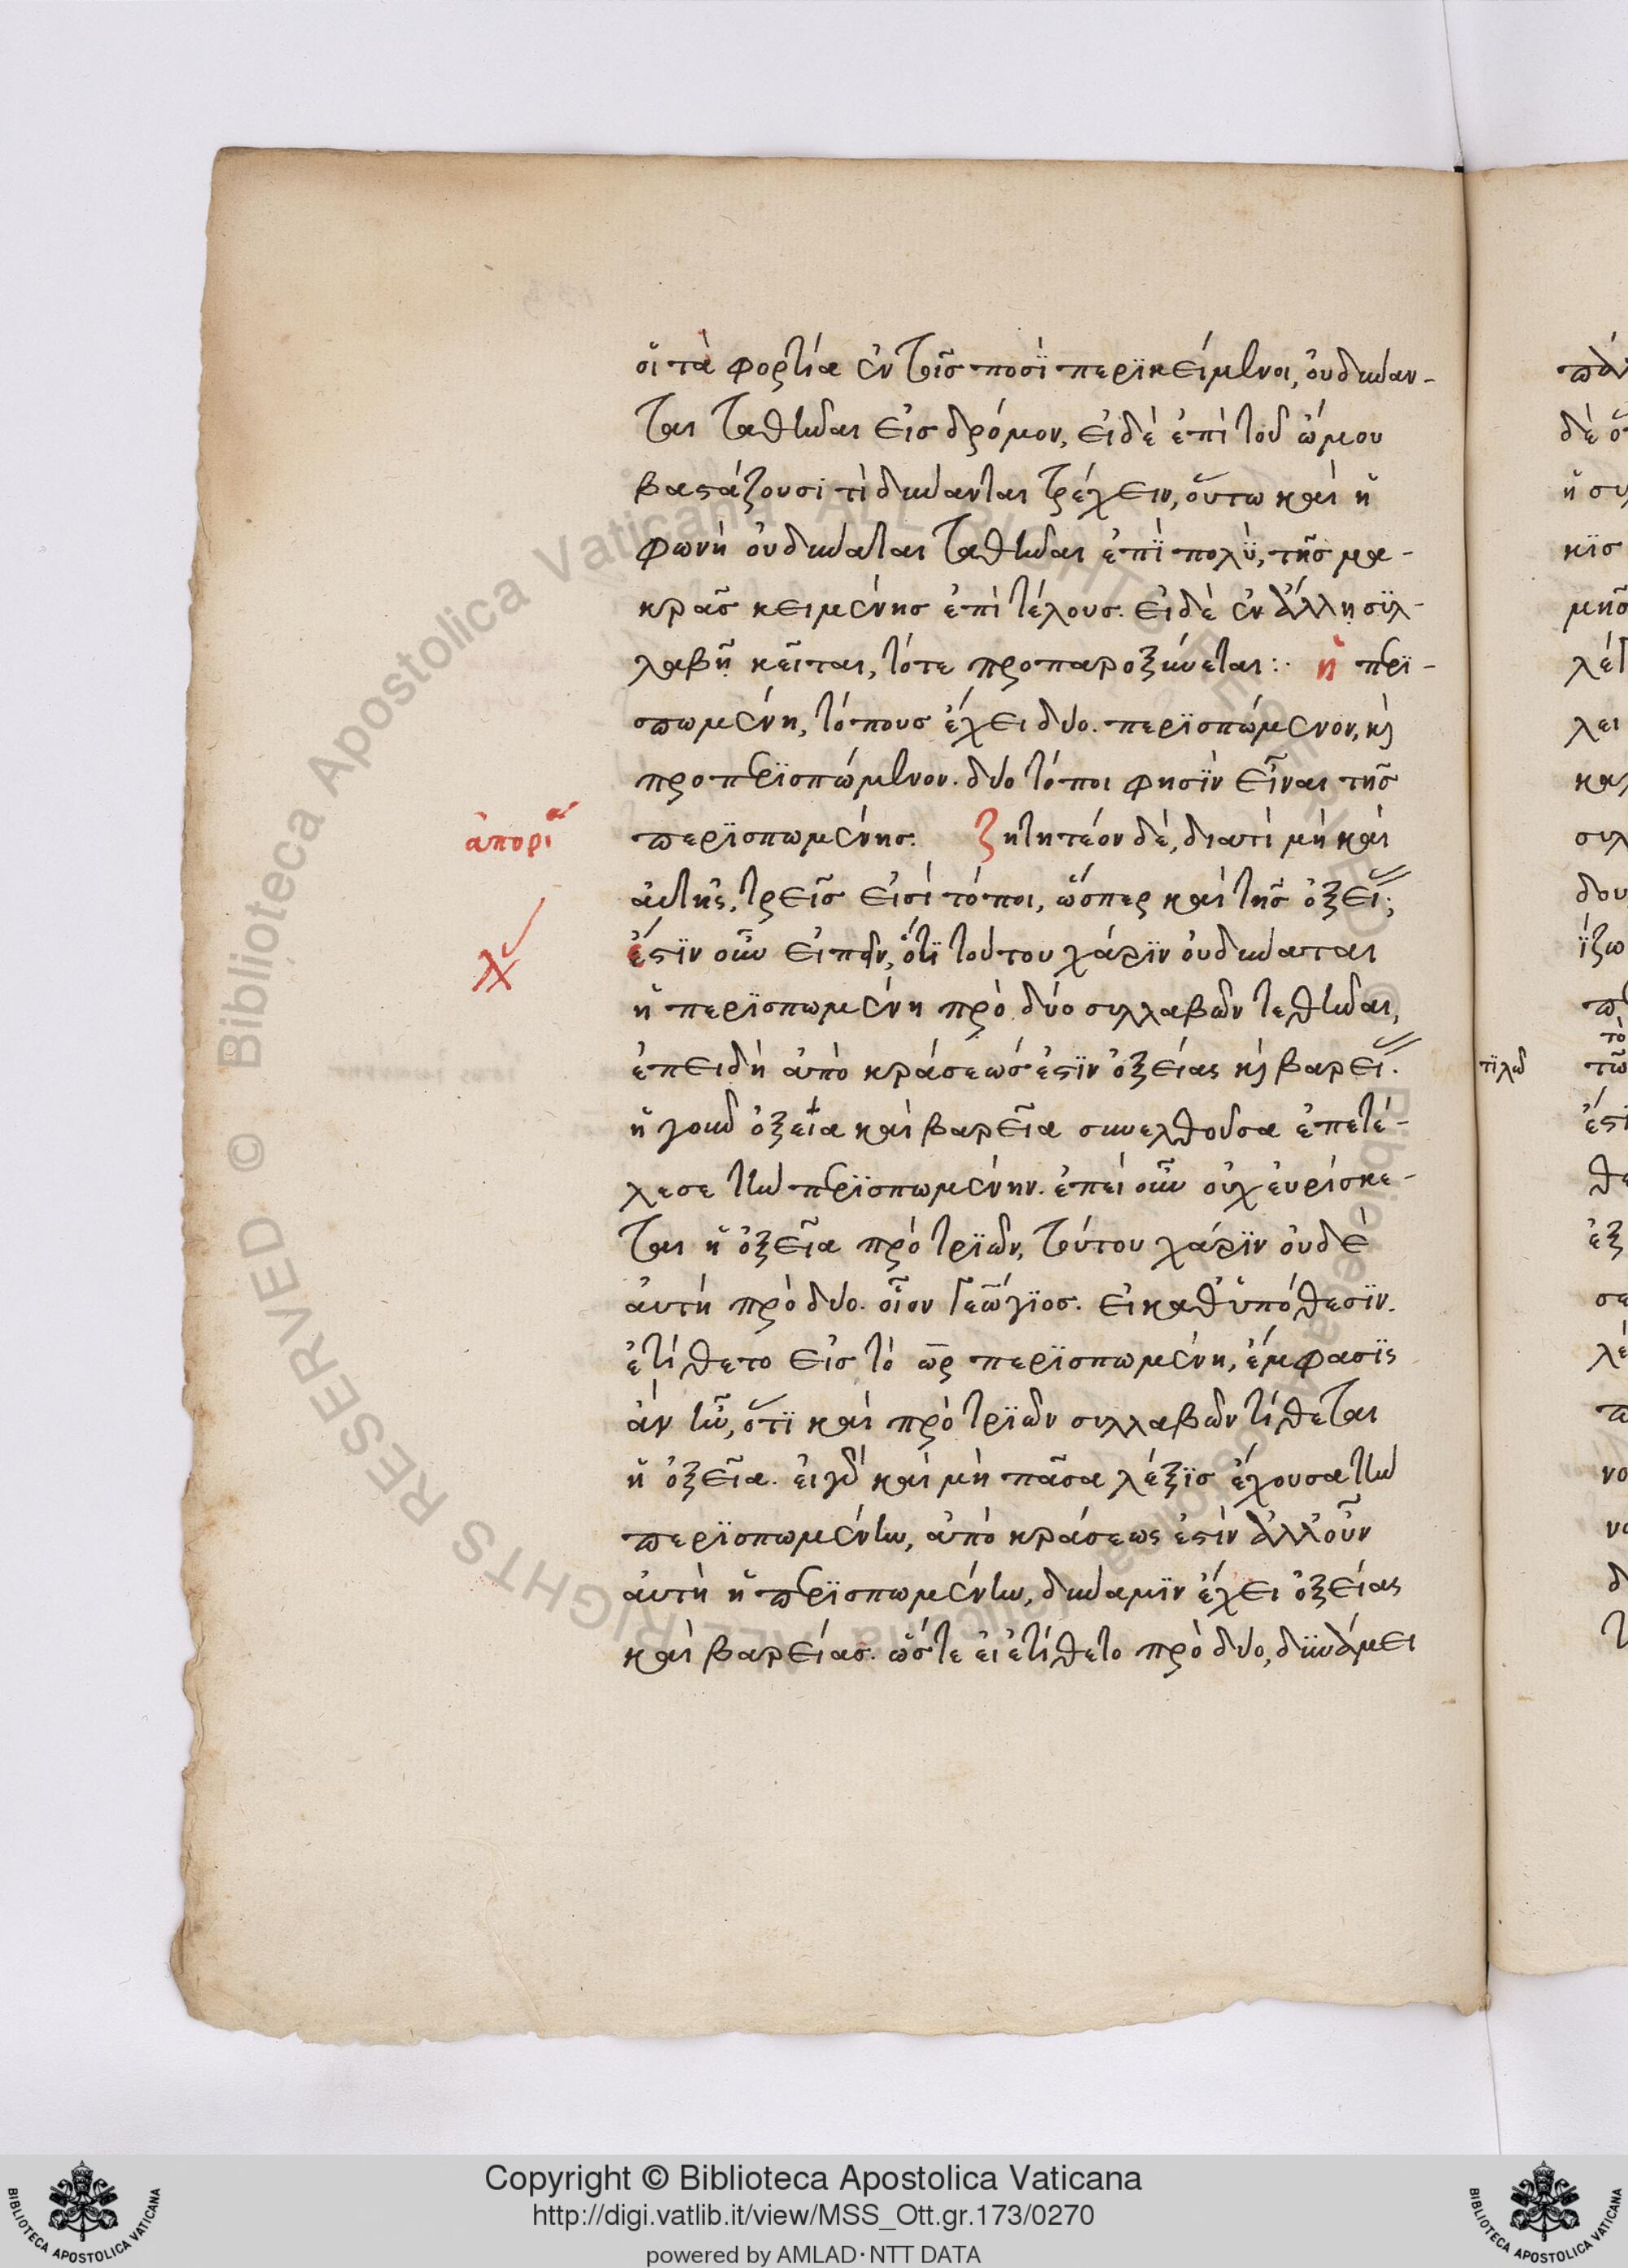 οἱ τὰ φορτία ἐν τοῖς ποσὶ περϊκείμενοι, οὐ δύναν-
ται ταθῆναι εἰς δρόμον, εἰ δὲ ἐπὶ τοῦ ὤμου
βαστάζουσί τι δύνανται τρέχειν, οὕτω καὶ ἡ
φωνὴ οὐ δύναται ταθῆναι ἐπῒ πολῢ, τῆς μα-
κρᾶς κειμένης ἐπὶ τέλους. εἰ δὲ ἐν ἄλλῃ σϋλ-
λαβῇ κεῖται, τότε προπαροξύνεται :· ἡ περϊ-
σπωμένη, τόπους ἔχει δύο. περϊσπώμενον, κὶ
προπερϊσπώμενον. δύο τόποι φησῒν εἶναι τῆς
ἀπορί
περϊσπωμένης. Ζητητέον δὲ, διατὶ μὴ καὶ
αὐτῆς, τρεῖς εἰσὶ τόποι, ὥσπερ καὶ τῆς ὀξεί;
ἔστϊν οὖν εἰπεῖν, ὅτϊ τούτου χάρϊν οὐ δύναται
ἡ περϊσπωμένη πρὸ δύο συλλαβῶν τεθῆναι,
ἐπειδὴ ἀπὸ κράσεώς ἐστϊν ὀξείας κὶ βαρεί.
ἡ γοῦν ὀξεῖα καὶ βαρεῖα συνελθοῦσα ἐπετέ-
λεσε τὴν περϊσπωμένην. ἐπεὶ οὖν οὐχ εὑρίσκε-
ται ἡ ὀξεῖα πρὸ τρϊῶν, τούτου χάρϊν οὐδὲ
αὐτὴ πρὸ δύο. οἷον Γεώργϊος. εἰ καθ' ὑπόθεσϊν
ἐτίθετο εἰς τὸ ωρ περϊσπωμένη, ἔμφασϊς
ἂν ἦν, ὅτϊ καὶ πρὸ τρϊῶν συλλαβῶν τίθεται
ἡ ὀξεῖα. εἰ γὰρ καὶ μὴ πᾶσα λέξϊς ἔχουσα τὴν
περϊσπωμένην, ἀπὸ κράσεως ἐστὶν ἀλλ' οὖν
αὐτὴ ἡ περϊσπωμένην, δύναμϊν ἔχει ὀξείας
καὶ βαρείας. ὥστε εἰ ἐτίθετο πρὸ δύο, δϋνάμει
Copyright © Biblioteca Apostolica Vaticana
http://digi.vatlib.it/view/MSS_Ott.gr.173/0270
powered by AMLAD·NTT DATA